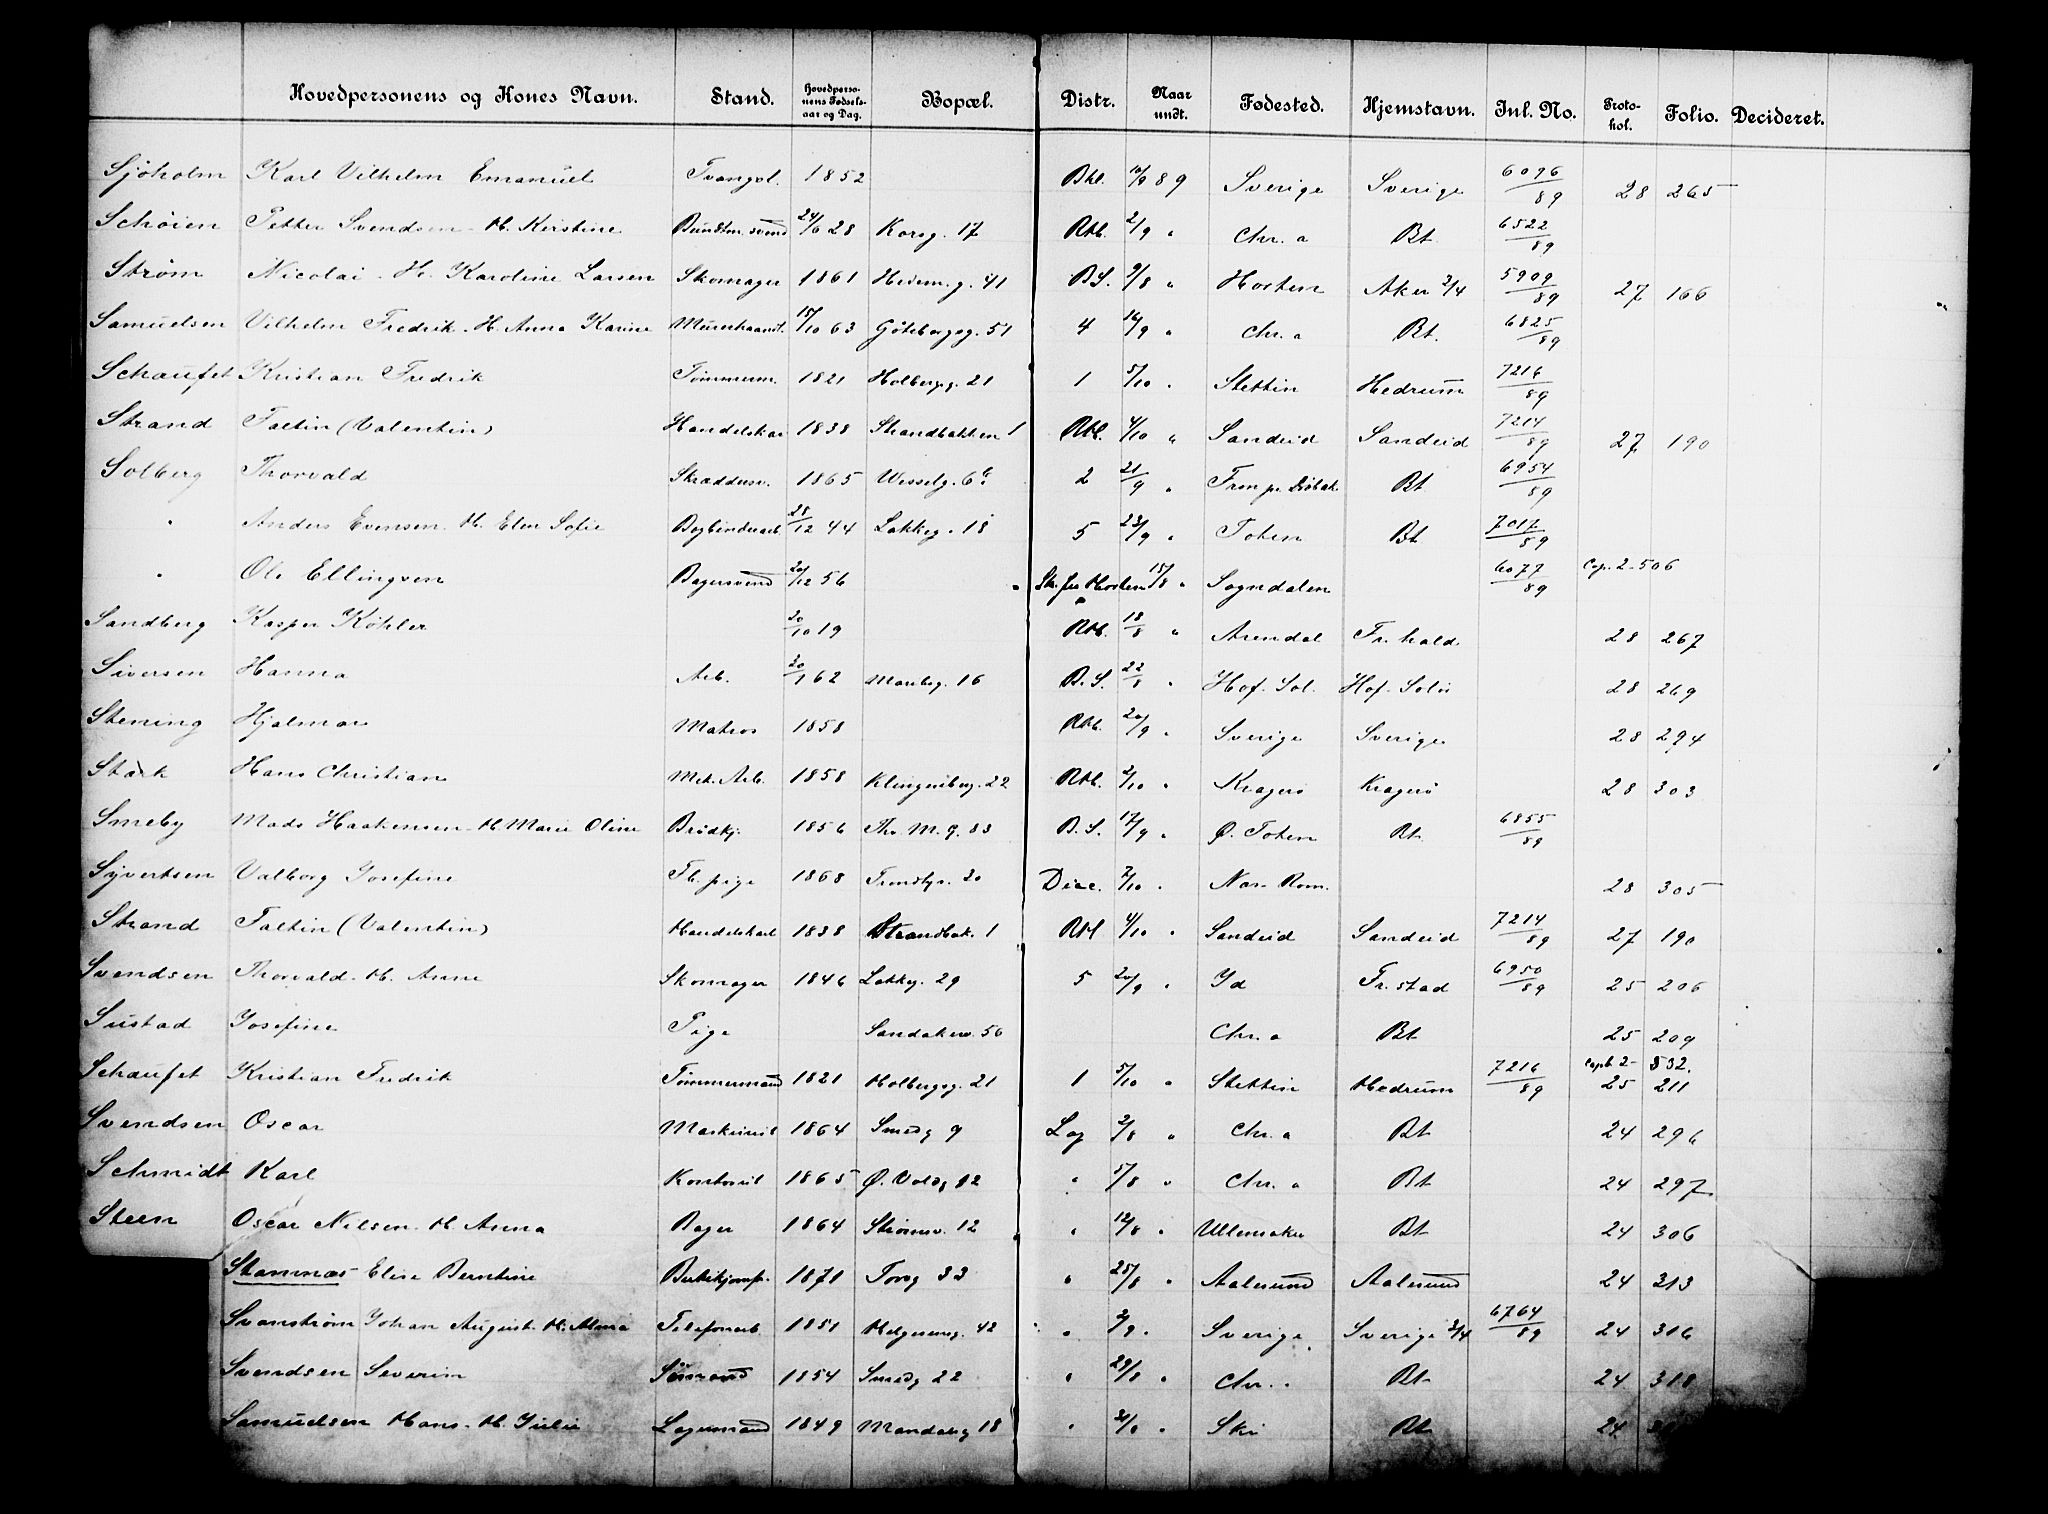 Hovedpersonens og Kones Navn. Stand. Hovedperso-nens Fødsels-aar og Dag. Bopæl. Distr. Naar undt. Fødested. Hjemstavn. Inl. No. Proto-kol. Folio. Decideret.
Sjöholm Karl Vilhelm Emanuel 1852 Bhl. 89 Sverige Sverige 6096/89 28 265
Schøien Petter Svendsen - H. Kirstine 24/6 28 Korsg. 17 Rbl. 2/9 " Chr.a Bt 6522/89
Strøm Nicolai - H. Karoline Larsen Skomager 1861 Hedem.g. 41 B.S. 9/8 " Horten Aker 3/4 5909/89 27 166
Samuelsen Vilhelm Fredrik - H. Anna Karine 15/10 63 Göteborgsg. 51 4 16/9 " Chr.a Bt. 6825/89
Schaufet Kristian Fredrik Tømmerm. 1821 Holbergsg. 21 1 5/10 " Stettin Hedrum 7216/89
Strand Faltin (Valentin) Handelskar 1838 Strandbakken 1 Rbl. 4/10 " Sandeid Sandeid 7214/89 27 190
Solberg Thorvald Skræddersv. 1865 Wesselg. 2 21/9 " Bt 6954/89
" Anders Evensen - H. Elen Sofie Bogbinderarb. 28/12 44 Lakkeg. 18 5 23/9 " Toten Bt 7017/89
" Ole Ellingsen Bagersvend 20/12 56 Horten 15/8 " Sogndalen 6077/89 Cop. 2-506
Sandberg Kasper Köhler 20/10 19 Rbl. 18/8 " Arendal Fr.hald 28 267
Siversen Hanna Arb. 20/1 62 Maribg. 16 B.S. 22/8 " Hof. Sol. Hof. Solör 28 269
Stening Hjalmar Matros 1858 Rbl. 20/9 " Sverige Sverige 28 294
Stærk Hans Christian Mek. Arb. 1858 Klingenbg. 22 Rbl. 2/10 " Kragerö Kragerö 28 303
Smeby Mads Haakensen - H. Marie Oline Brödkj. 1856 Th. M. g. 83 B.S. 17/9 " Ø. Toten Bt 6855/89
Syvertsen Valborg Josefine Tj. pige 1868 20 Disc. 2/10 " Næs Rom. 28 305
Strand Faltin (Valentin) Handelskarl 1838 Strandbak. 1 Rbl 4/10 " Sandeid Sandeid 7214/89 27 190
Svendsen Thorvald - H. Anne Skomager 1846 Lakkeg. 29 5 20/9 " Id Fr.stad 6950/89 25 206
Sustad Josefine Pige Sandakerv. 56 Chr.a Bt 25 209
Schaufet Kristian Fredrik Tømmermand 1821 Holbergsg. 21 1 5/10 " Stettin Hedrum 7216/89 Copb 2- 532. 25 211
Svendsen Oscar Maskinist 1864 Smedg 9 Log 2/8 " Chr.a Bt 24 296
Schmidt Karl Kontorist 1865 Ø. Voldg 12 " 5/8 " Chr.a Bt 24 297
Steen Oscar Nilsen - H. Anna Bager 1864 Strømsv. 12 " 12/8 " Ullensaker Bt 24 306
Stamnæs Elise Berntine Butikjomfr. 1871 Torvg 33 " 25/8 " Aalesund Aalesund 24 313
Svanstrøm Johan August - H. Alma Telefonarb. 1851 Helgesensg. 42 " 3/9 " Sverige Sverige 3/4 6764/89 24 316
Svendsen Severin Sømand 1854 Smedg 22 " 29/8 " Chr.a Bt 24 318
Samuelsen Hans - H. Julie Lagermand 1849 Mandalsg 18 " " Ski Bt 24